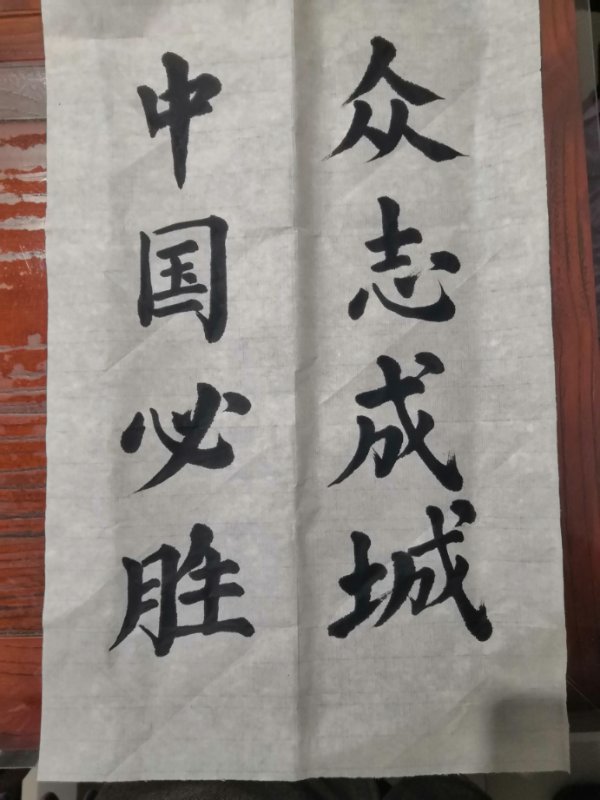 众志成城
中国必胜